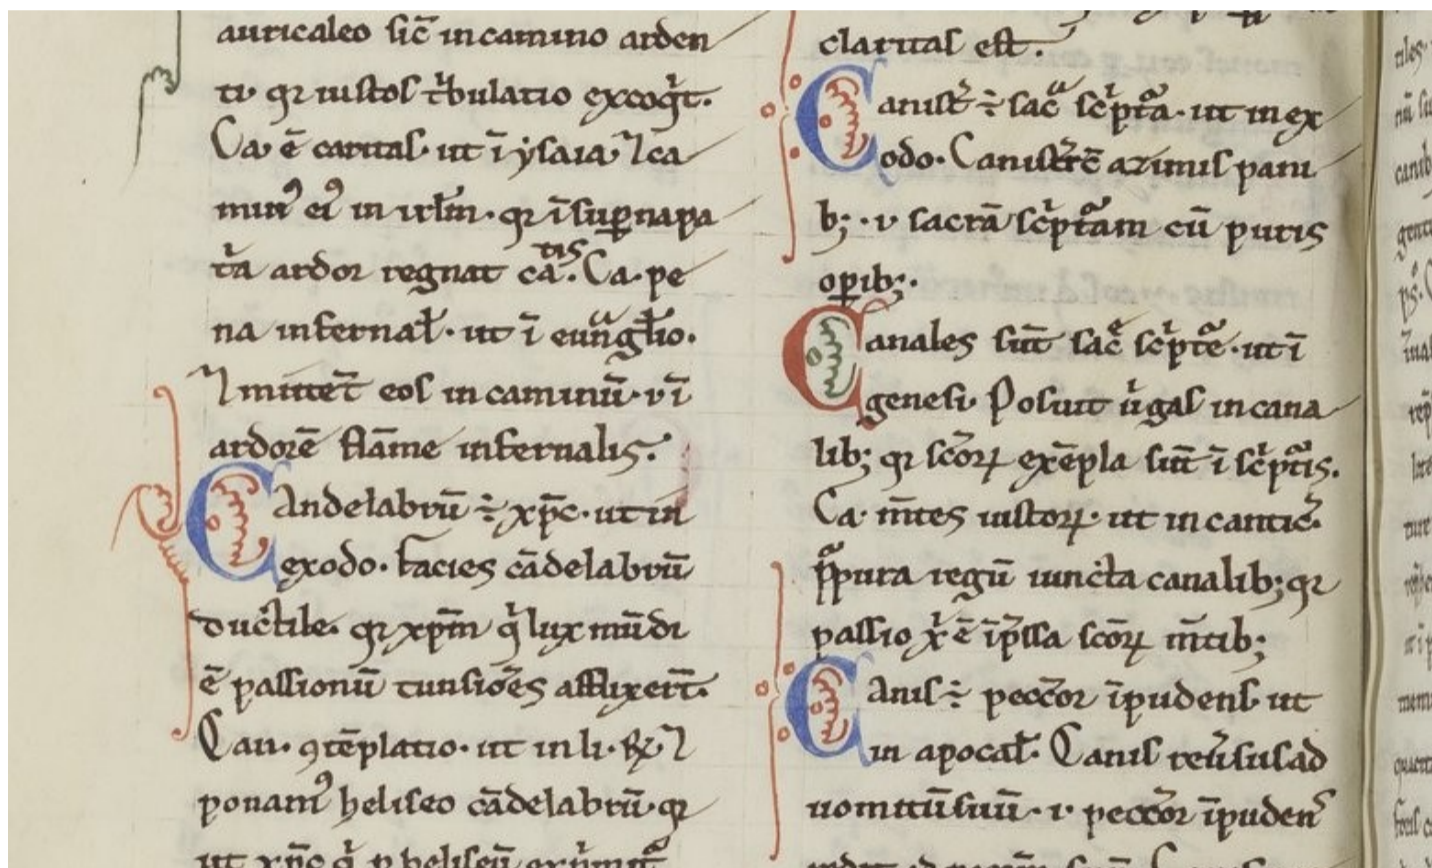 auricaleo sic̄ in camino arden
ti· qr iustos t̄bulatio excoq̇t.
Ca· ē caritas· ut ī ẏsaia ⁊ ca
minꝰ eiꝰ in irlm̄· qr ī supͣna pa
t̄a ardor regnat ca᷒tis. Ca· pe
na infernal̄· ut ī euͣngl̄io.
⁊ mittet̄ eos in caminū· ·i· ī
ardorē flāme infernalis.
Candelabrū ÷ xp̄c· ut in
exodo. facies cādelabrū
ductile· qr xp̄m qͥ lux mūdi
ē passionū tunsiōes afflixer̄t.
Can· ꝯtēplatio· ut in li· Rꝫ ⁊
ponamꝰ heliseo cādelabrū· qr
claritas est.
Canist̄ ÷ sacͣ scͥptͣa· ut in ex
odo. Canist̄rē azimis pani
bꝫ· ·i· sacrā scͥptͣam cū puris
oꝑibꝫ·
Canales sūt sacͤ scͥptͣe· ut ī
genesi. Posuit uͥgas in cana
libꝫ qr scōꝝ exēpla sūt ī scͥptͥis.
Ca· m̄tes iustoꝝ· ut in cantic̄.
pͣpura regū iuncta canalibꝫ qr
passio xͥ ē īpͥssa scōꝝ m̄tibꝫ
Canis ÷ peccōr īpudens· ut
in apocal̄. Canis reu̅sus ad
uomitū suū· ·i· peccōr īpudens